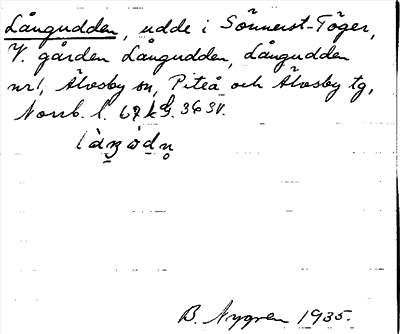 Långudden, udde i Sönnerst-Töger,
V. gården Långudden, Långudden
nr1, Älvsby sn, Piteå och Älvsby tg,
Norrb. l.
B. Nygren 1935.